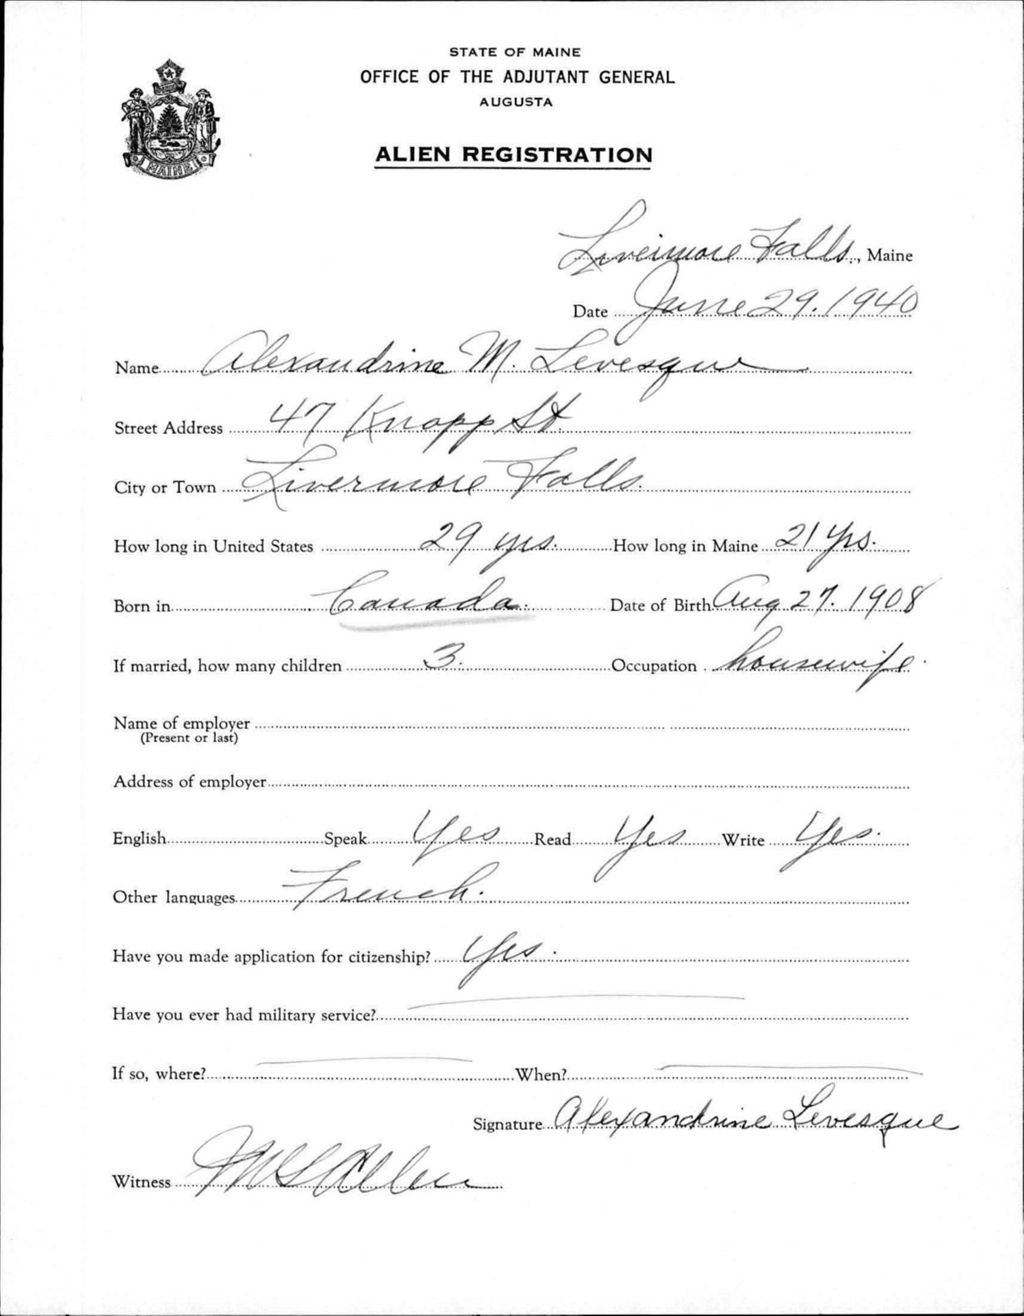 STATE OF MAINE
OFFICE OF THE ADJUTANT GENERAL
AUGUSTA
ALIEN REGISTRATION
MAINE
Livermore Falls, Maine
Date June 29. 1940
Name Alexandrine M. Levesque
Street Address 47 Knapp St.
City or Town Livermore Falls.
How long in United States 29 yrs. How long in Maine 21 Yrs.
Born in Canada. Date of Birth Aug 27. 1908
If married, how many children 3. Occupation housewife.
Name of employer
(Present or last)
Address of employer
English Speak Yes Read Yes Write Yes.
Other languages French.
Have you made application for citizenship? Yes.
Have you ever had military service?
If so, where? When?
Signature Alexandrine Levesque
Witness Allen